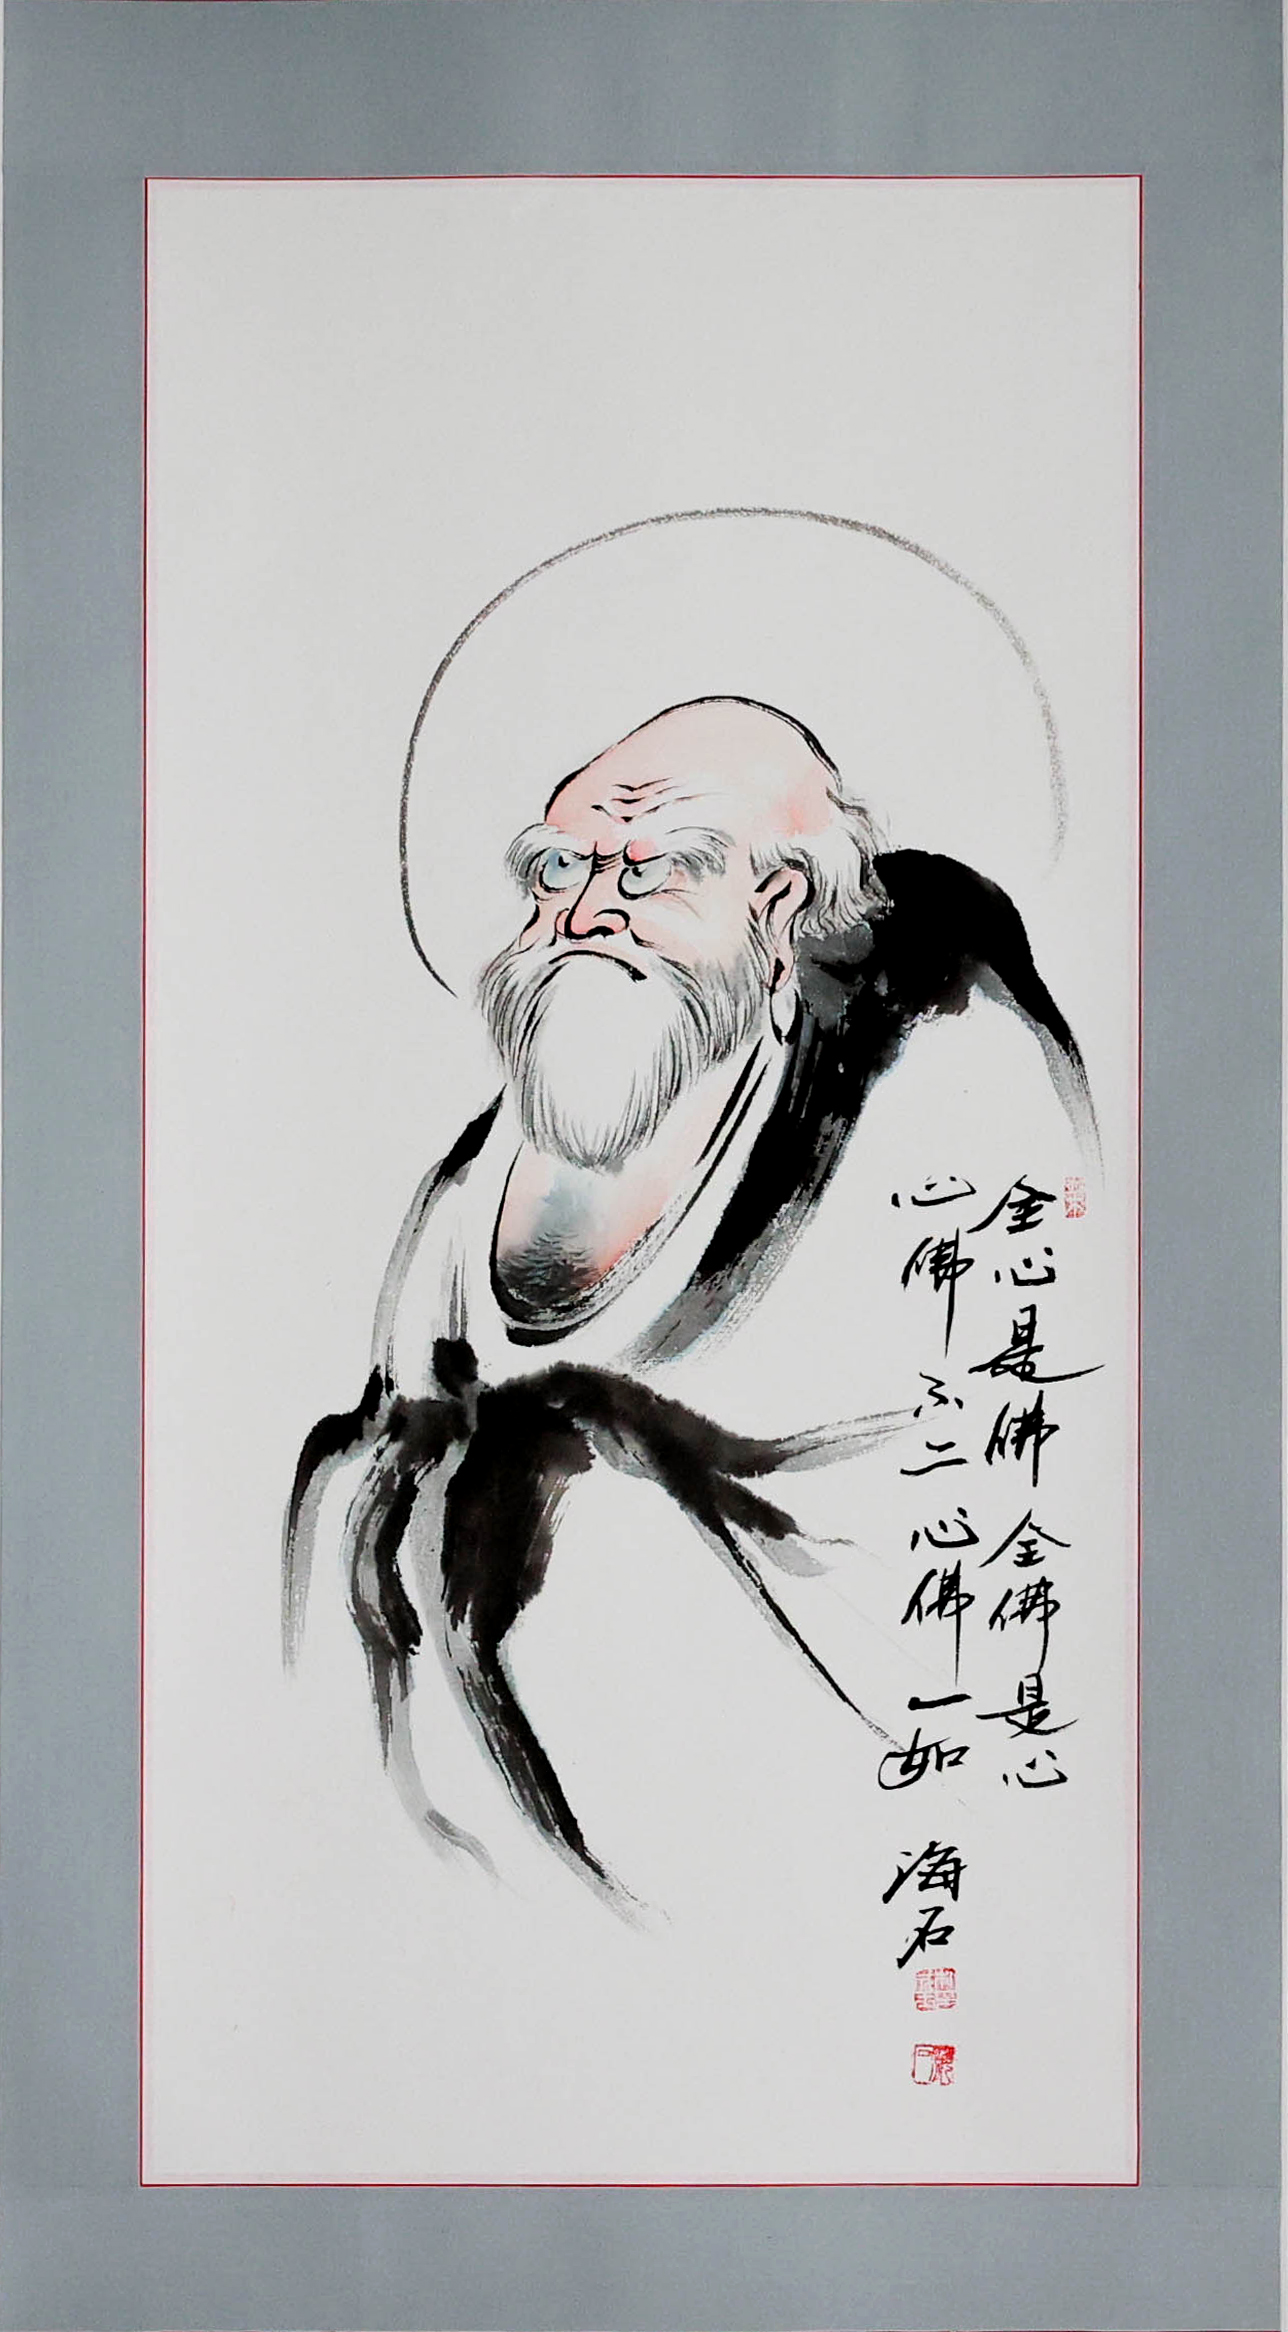 全心是佛全佛是心
心佛不二心佛一如
海石